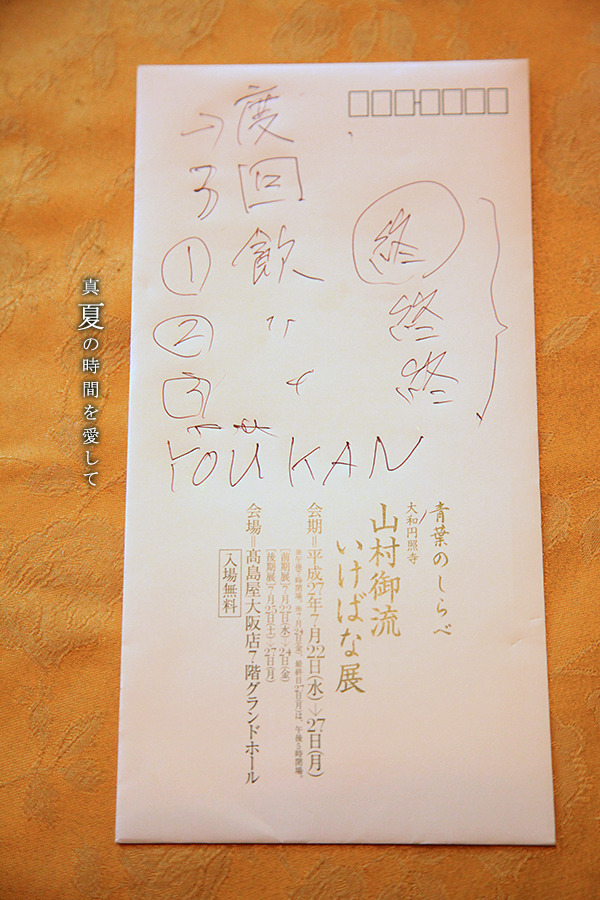 真夏の時間を愛して
→ 度
3 回
① 飲 終
② 〃 終
③ 〃 終
YOUKAN
青葉のしらべ
大和円照寺
山村御流
いけばな展
会期＝平成27年7月22日(水)→27日(月)
[前期展]7月22日(水)→24日(金)
[後期展]7月25日(土)→27日(月)
会場＝髙島屋大阪店7階グランドホール
入場無料